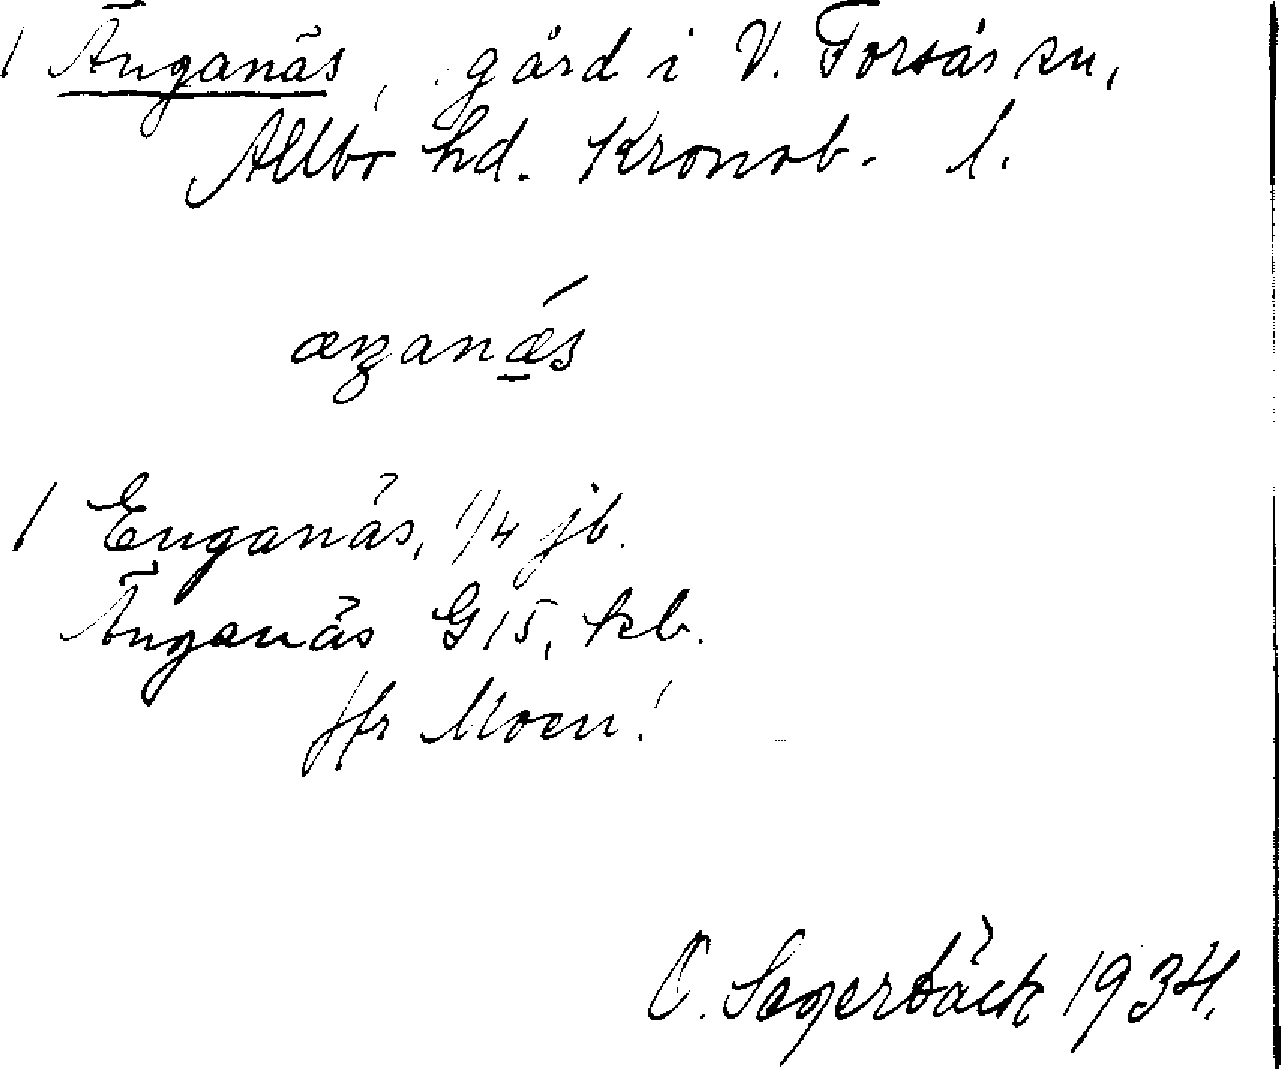 1 Änganäs, gård i V. Torsås sn,
Allbo hd. Kronob. l.
æŋanǽs
1 Enganäs, 1/4 jb.
Änganäs G 15, kb.
Jfr Moen!
O. Sagerbäck 1934.